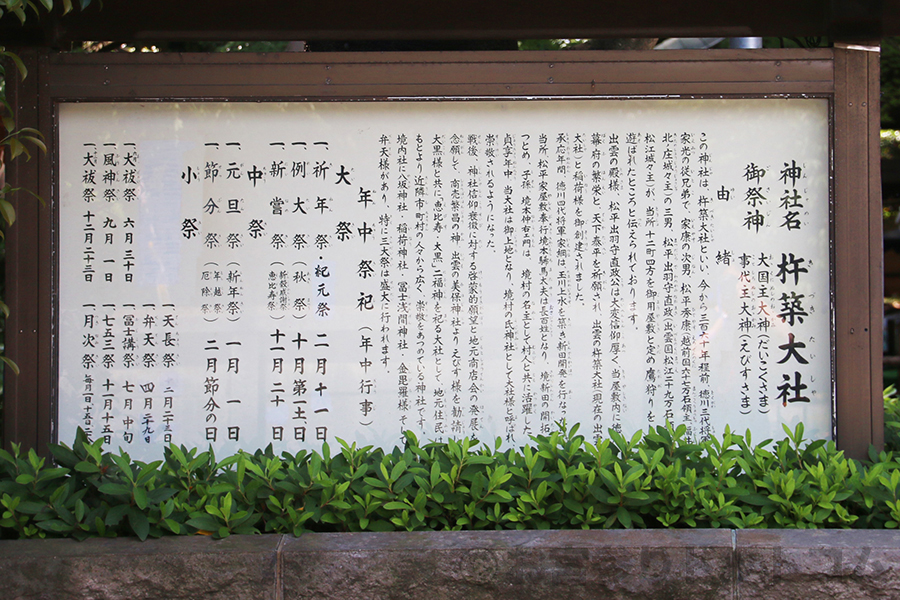 神社名 杵築大社
御祭神 大国主大神(だいこくさま)
事代主大神(えびすさま)
由緒
この神社は、杵築大社といい、今から三百六十年程前、徳川三代将軍
家光の従兄弟で、家康の次男、松平秀康、越前国六十七万石領主、福井
北ノ庄城々主)の三男、松平出羽守直政(出雲国松江二十九万石
松江城々主)が、当所十二町四方を御用屋敷と定め鷹狩りを
遊ばれたところと伝えられております。
出雲の殿様、松平出羽守直政公は大変信仰厚く、当屋敷内に徳
幕府の繁栄と、天下泰平を祈願され、出雲の杵築大社(現在の出雲
大社)と稲荷様を御創建されました。
承応年間、徳川四代将軍家綱は、玉川上水を築き新田開発を行な
当所、松平家屋敷奉行境本騎馬太夫は長百姓となり、境新田の開拓
つとめ、子孫、境本仲右ヱ門は、境村の名主として村人と共に活躍した
貞享年中、当大社は御上地となり、境村の氏神社として大社様と呼ばれ
崇敬されるようになった。
戦後、神社信仰衰微に対する啓蒙的願望と地元商店会の発展
念願して、商売繁昌の神、出雲の美保神社より、えびす様を勧請
大黒様と共に、恵比寿・大黒・二福神を祀る大社として、地元住民は
もとより近隣市町村の人々から広く崇敬をあつめている神社です。
境内社に八坂神社・稲荷神社・冨士浅間神社・金毘羅様・
弁天様があり、特に三大祭は盛大に行われます。
年中祭祀(年中行事)
大祭
一、祈年祭・紀元祭 二月十一日
一、例大祭(秋祭) 十月第土、日
一、新嘗祭(新穀感謝祭 恵比寿祭) 十一月二十
中祭
一、元旦祭(新年祭) 一月一日
一、節分祭(年越祭 厄除祭) 二月節分の日
小祭
一、天長祭 二月二十三
一、弁天祭 四月二十九日
一、大祓祭 六月三十日
一、冨士講祭 七月中旬
一、風神祭 九月一日
一、七五三祭 十一月十五
一、大祓祭 十二月二十三日
一、月次祭 毎月一日十五